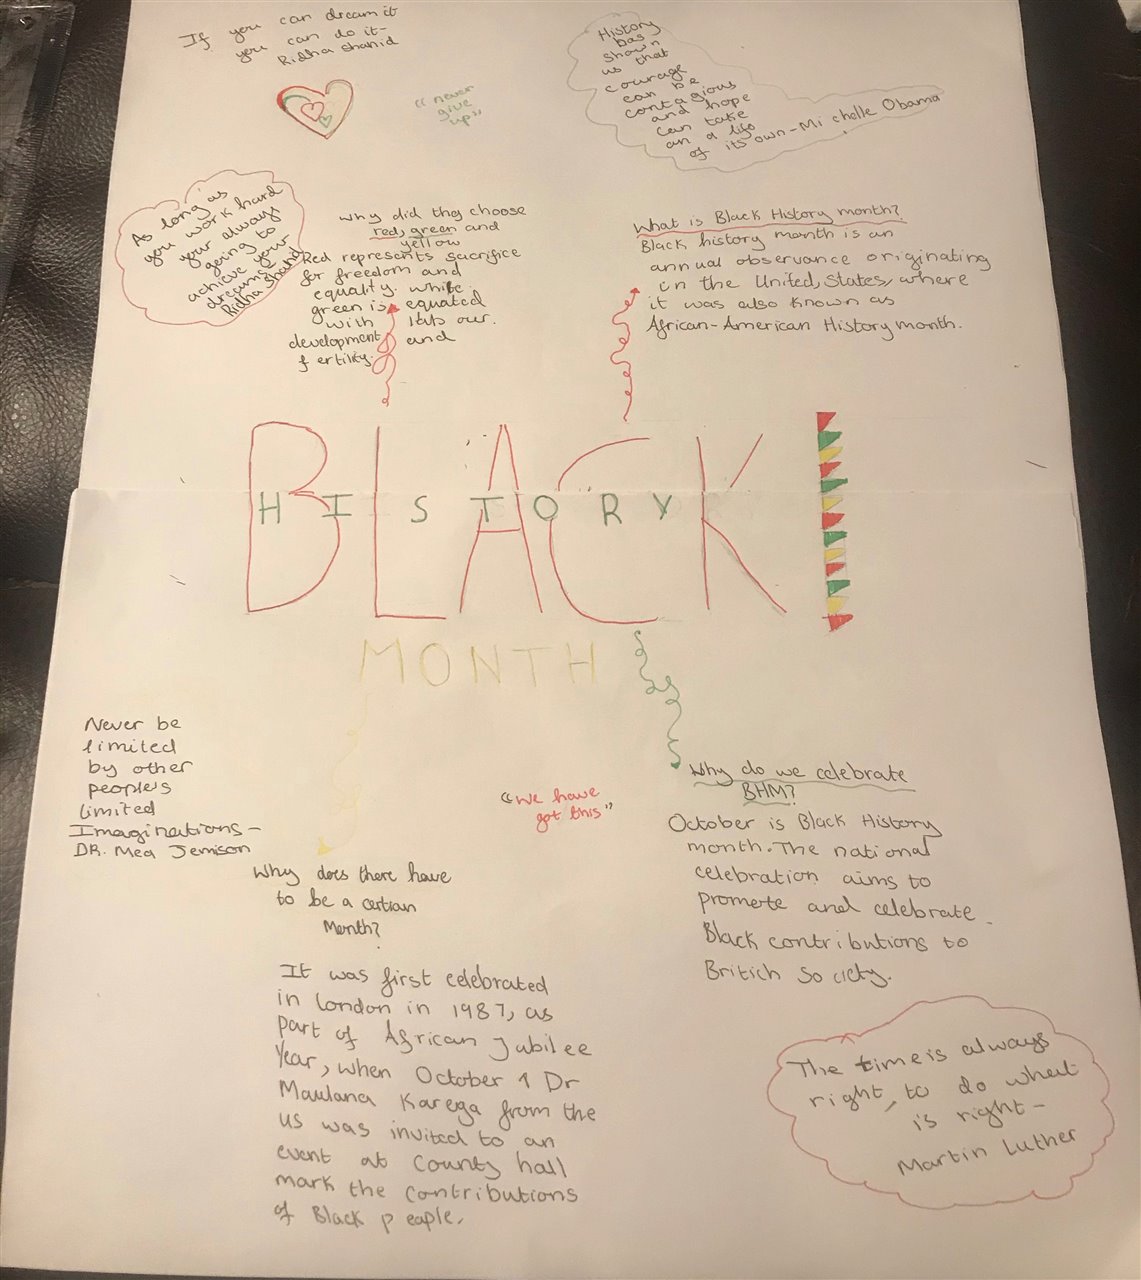 If you can dream it
you can do it-
Ridha Shahid
"never
give
up"
History
has
shown
us that
courage
can be
contagious
and hope
can take
an a life
of its own-Michelle Obama
As long as
you work hard
your always
going to
achieve your
dreams-
Ridha Shahid
Why did they choose
red, green and
yellow
Red represents sacrifice
for freedom and
equality. while
green is equated
with
development and
fertility.
What is Black History month?
Black history month is an
annual observance originating
in the United, States, where
it was also known as
African-American History month.
BLACK
HISTORY
MONTH
Never be
limited
by other
people's
limited
Imaginations-
DR. Mea Jemison
"we have
got this"
Why do we celebrate
BHM?
October is Black History
month. The national
celebration aims to
promote and celebrate
Black contributions to
Britich Society.
Why does there have
to be a certian
Month?
It was first celebrated
in London in 1987, as
part of African Jubilee
Year, when October 1 Dr
Maulana Karega from the
us was invited to an
event at County hall
mark the contributions
of Black peaple.
The time is always
right, to do what
is right-
Martin Luther